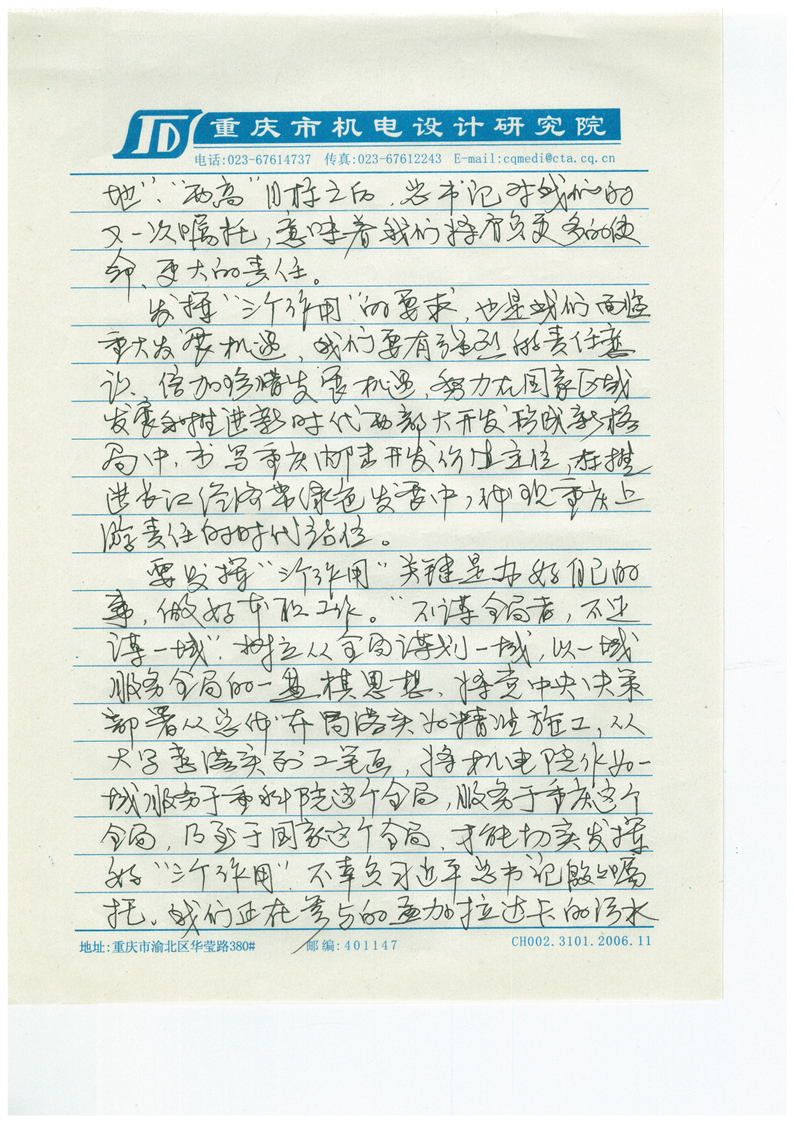 JD 重庆市机电设计研究院
电话:023-67614737 传真:023-67612243 E-mail:cqmedi@cta.cq.cn
地”、“两高”目标之后，总书记对我们的
又一次嘱托，意味着我们将肩负更多的使
命、更大的责任。
发挥“三个作用”的要求，也是我们面临
重大发展机遇，我们要有强烈的责任意
识、倍加珍惜发展机遇，努力在国家区域
发展和推进新时代西部大开发形成新格
局中，书写重庆内陆开发，在推
进长江经济带绿色发展中，体现重庆上
游责任的时代站位。
要发挥“三个作用”关键是办好自己的
事，做好本职工作。“不谋全局者，不足
谋一域”。树立从全局谋划一域，以一域
服务全局的一盘棋思想，将党中央决策
部署从总体布局落实为精准施工，从
大写意落实到工笔画，将机电院作为一
域服务于重科院这个全局，服务于重庆这个
全局，乃至于国家这个全局，才能切实发挥
好“三个作用”，不辜负习近平总书记殷殷嘱
托。我们正在参与的孟加拉达卡的污水
地址:重庆市渝北区华莹路380# 邮编:401147 CH002.3101.2006.11